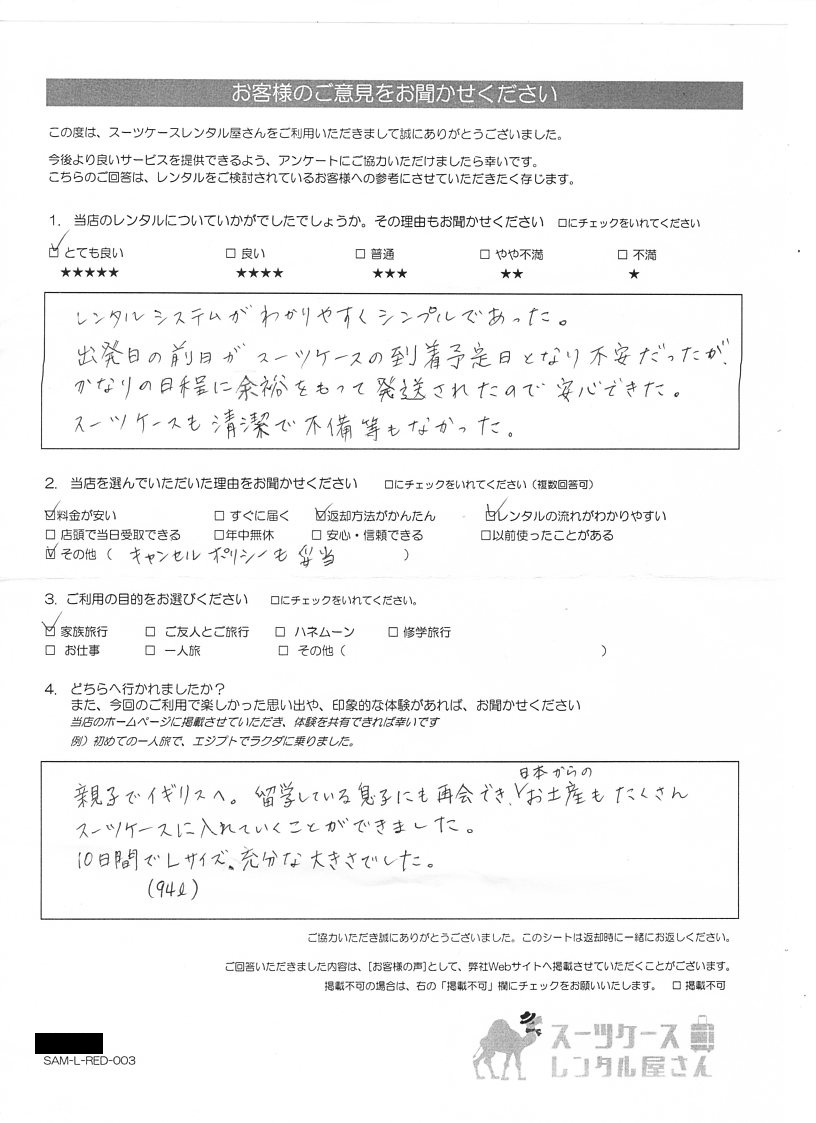 お客様のご意見をお聞かせください
この度は、スーツケースレンタル屋さんをご利用いただきまして誠にありがとうございました。
今後より良いサービスを提供できるよう、アンケートにご協力いただけましたら幸いです。
こちらのご回答は、レンタルをご検討されているお客様への参考にさせていただきたく存じます。
1. 当店のレンタルについていかがでしたでしょうか。その理由もお聞かせください □にチェックをいれてください
☑ とても良い □ 良い □ 普通 □ やや不満 □ 不満
★★★★★ ★★★★ ★★★ ★★ ★
レンタルシステムがわかりやすくシンプルであった。
出発日の前日がスーツケースの到着予定日となり不安だったが、
かなりの日程に余裕をもって発送されたので安心できた。
スーツケースも清潔で不備等もなかった。
2. 当店を選んでいただいた理由をお聞かせください □にチェックをいれてください（複数回答可）
☑料金が安い □ すぐに届く ☑返却方法がかんたん ☑レンタルの流れがわかりやすい
□ 店頭で当日受取できる □年中無休 □ 安心・信頼できる □以前使ったことがある
☑ その他（ キャンセルポリシーも妥当 ）
3. ご利用の目的をお選びください □にチェックをいれてください。
☑ 家族旅行 □ ご友人とご旅行 □ ハネムーン □ 修学旅行
□ お仕事 □ 一人旅 □ その他（ ）
4. どちらへ行かれましたか？
また、今回のご利用で楽しかった思い出や、印象的な体験があれば、お聞かせください
当店のホームページに掲載させていただき、体験を共有できれば幸いです
例）初めての一人旅で、エジプトでラクダに乗りました。
親子でイギリスへ。留学している息子にも再会でき、日本からのお土産もたくさん
スーツケースに入れていくことができました。
10日間でLサイズ、充分な大きさでした。
(94ℓ)
ご協力いただき誠にありがとうございました。このシートは返却時に一緒にお返しください。
ご回答いただきました内容は、[お客様の声]として、弊社Webサイトへ掲載させていただくことがございます。
掲載不可の場合は、右の「掲載不可」欄にチェックをお願いいたします。 □ 掲載不可
SAM-L-RED-003
スーツケース
レンタル屋さん